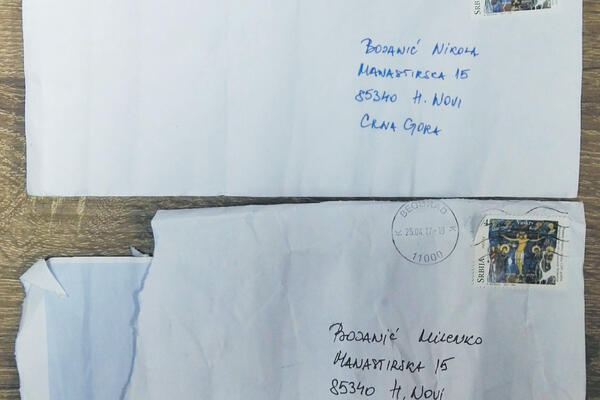 SRBIJA
BOJANIĆ NIKOLA
MANASTIRSKA 15
85340 H. NOVI
CRNA GORA
BEOGRAD
K 25.04.17-18 K
11000
SRBIJA
BOJANIĆ MILENKO
MANASTIRSKA 15
85340 H. NOVI